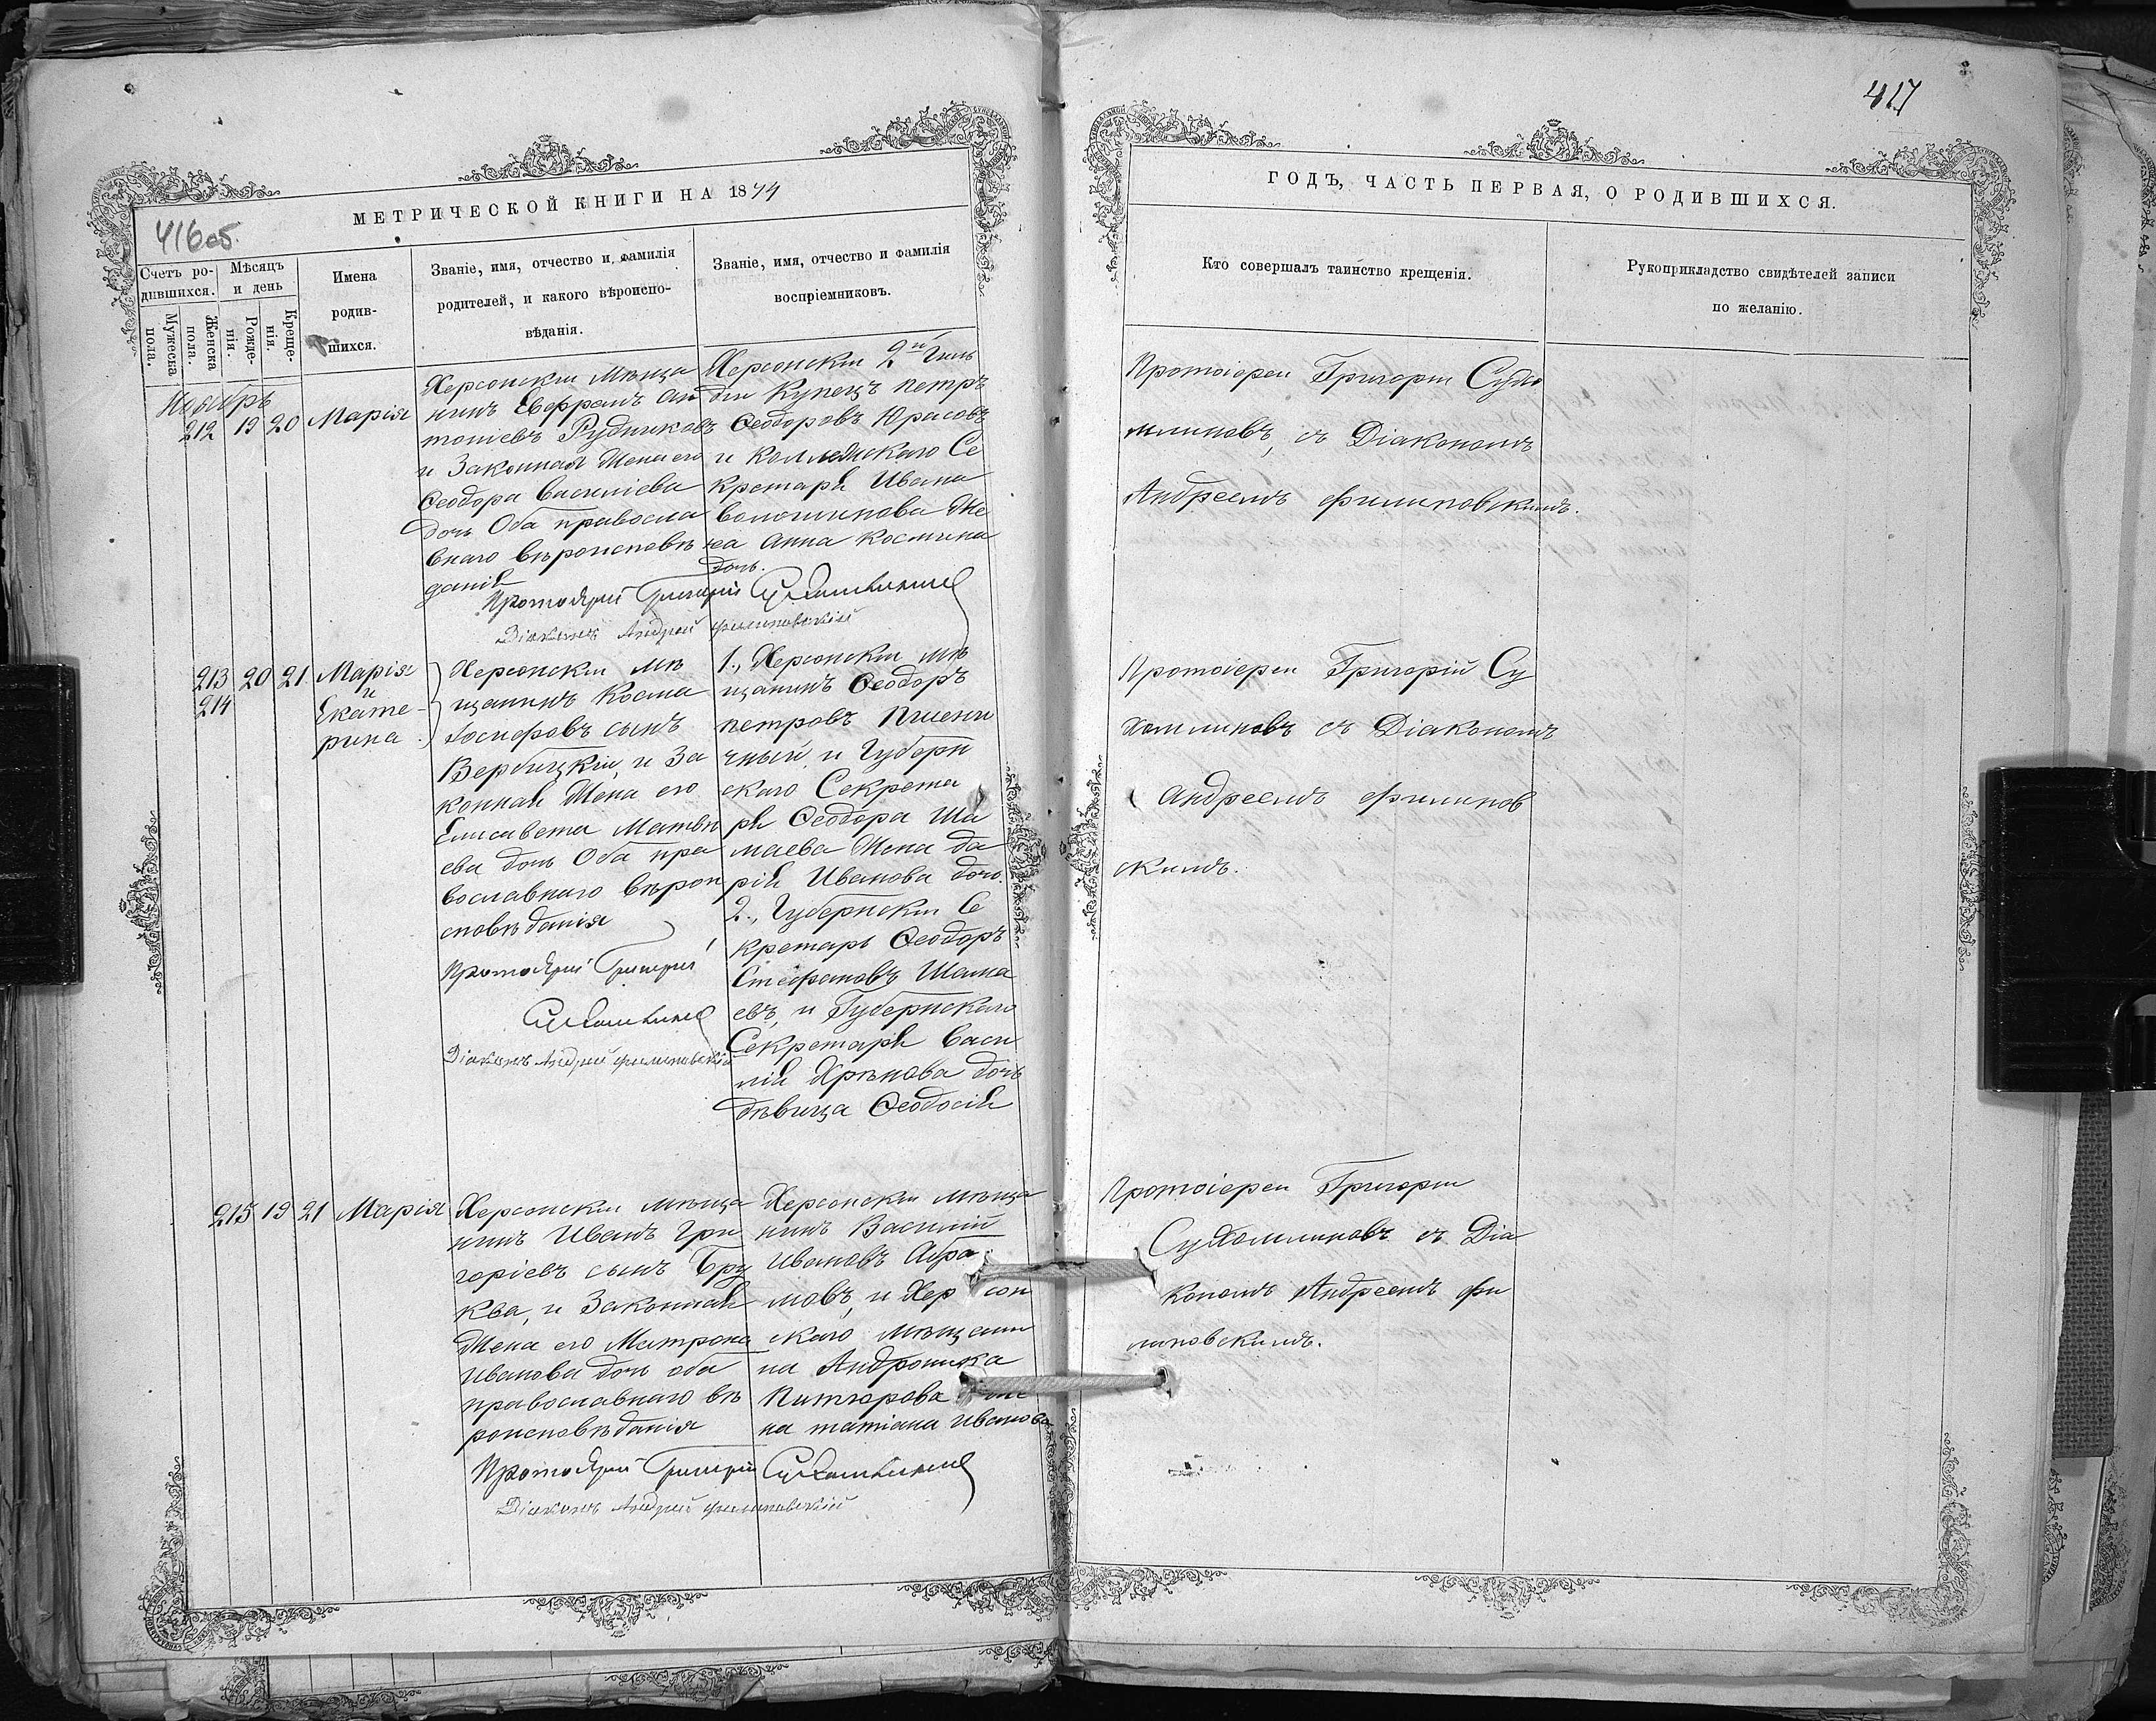 417
МЕТРИЧЕСКОЙ КНИГИ НА 1874
ГОДЪ, ЧАСТЬ ПЕРВАЯ, О РОДИВШИХСЯ.
416об.
Счетъ ро-
дившихся.
Мужеска
пола.
Женска
пола.
Мѣсяцъ
и день
Рожде-
нія.
Креще-
нія.
Имена
родив-
шихся.
Званіе, имя, отчество и фамилія
родителей, и какого вѣроиспо-
вѣданія.
Званіе, имя, отчество и фамилія
воспріемниковъ.
Кто совершалъ таинство крещенія.
Рукоприкладство свидѣтелей записи
по желанію.
Ноябрь
212 19 20 Марія
Херсонскій Мѣща
нинъ Евфрамъ Ан
тоніевъ Рудниковъ
и Законная Жена его
Ѳеодора Василіева
дочь Оба правосла
внаго вѣроисповѣ
данія
Херсонскій 2й Гиль
діи Купецъ Петръ
Ѳеодоровъ Юрасовъ
и Коллежскаго Се
кретаря Ивана
Волошинова Же
на Анна Космина
дочь.
Протоіерей Григорій Сухомлиновъ
Діаконъ Андрей Филиповскій
Протоіерей Григорій Сухо
млиновъ, съ Діакономъ
Андреемъ Филиповскимъ.
213 20 21 Марія
214
и
Екате-
рина.
Херсонскій мѣ
щанинъ Косма
Іосифовъ сынъ
Вербицкій, и За
конная Жена его
Елисавета Матвѣ
ева дочь Оба пра
вославнаго вѣрои
сповѣданія
Протоіерей Григорій
Сухомлиновъ
Діаконъ Андрей Филиповскій
1., Херсонскій мѣ
щанинъ Ѳеодоръ
Петровъ Пшени
чный, и Губерн
скаго Секрета
ря Ѳеодора Ша
маева Жена Да
рія Иванова дочь.
2., Губернскій Се
кретарь Ѳеодоръ
Стефановъ Шама
евъ, и Губернскаго
Секретаря Васи
лія Хрѣнова дочь
дѣвица Ѳеодосія
Протоіерей Григорій Су
хомлиновъ съ Діакономъ
Андреемъ Филипов
скимъ.
215 19 21 Марія
Херсонскій мѣща
нинъ Иванъ Гри
горіевъ сынъ Бру
ква, и Законная
Жена его Матрона
Иванова дочь оба
православнаго вѣ
роисповѣданія
Херсонскій мѣща
нинъ Василій
Ивановъ Абра
мовъ, и Херсон
скаго мѣщани
на Андроника
на Татіана Иванова
Протоіерей Григорій Сухомлиновъ
Діаконъ Андрей Филиповскій
Протоіерей Григорій
Сухомлиновъ съ Діа
кономъ Андреемъ Фи
липовскимъ.